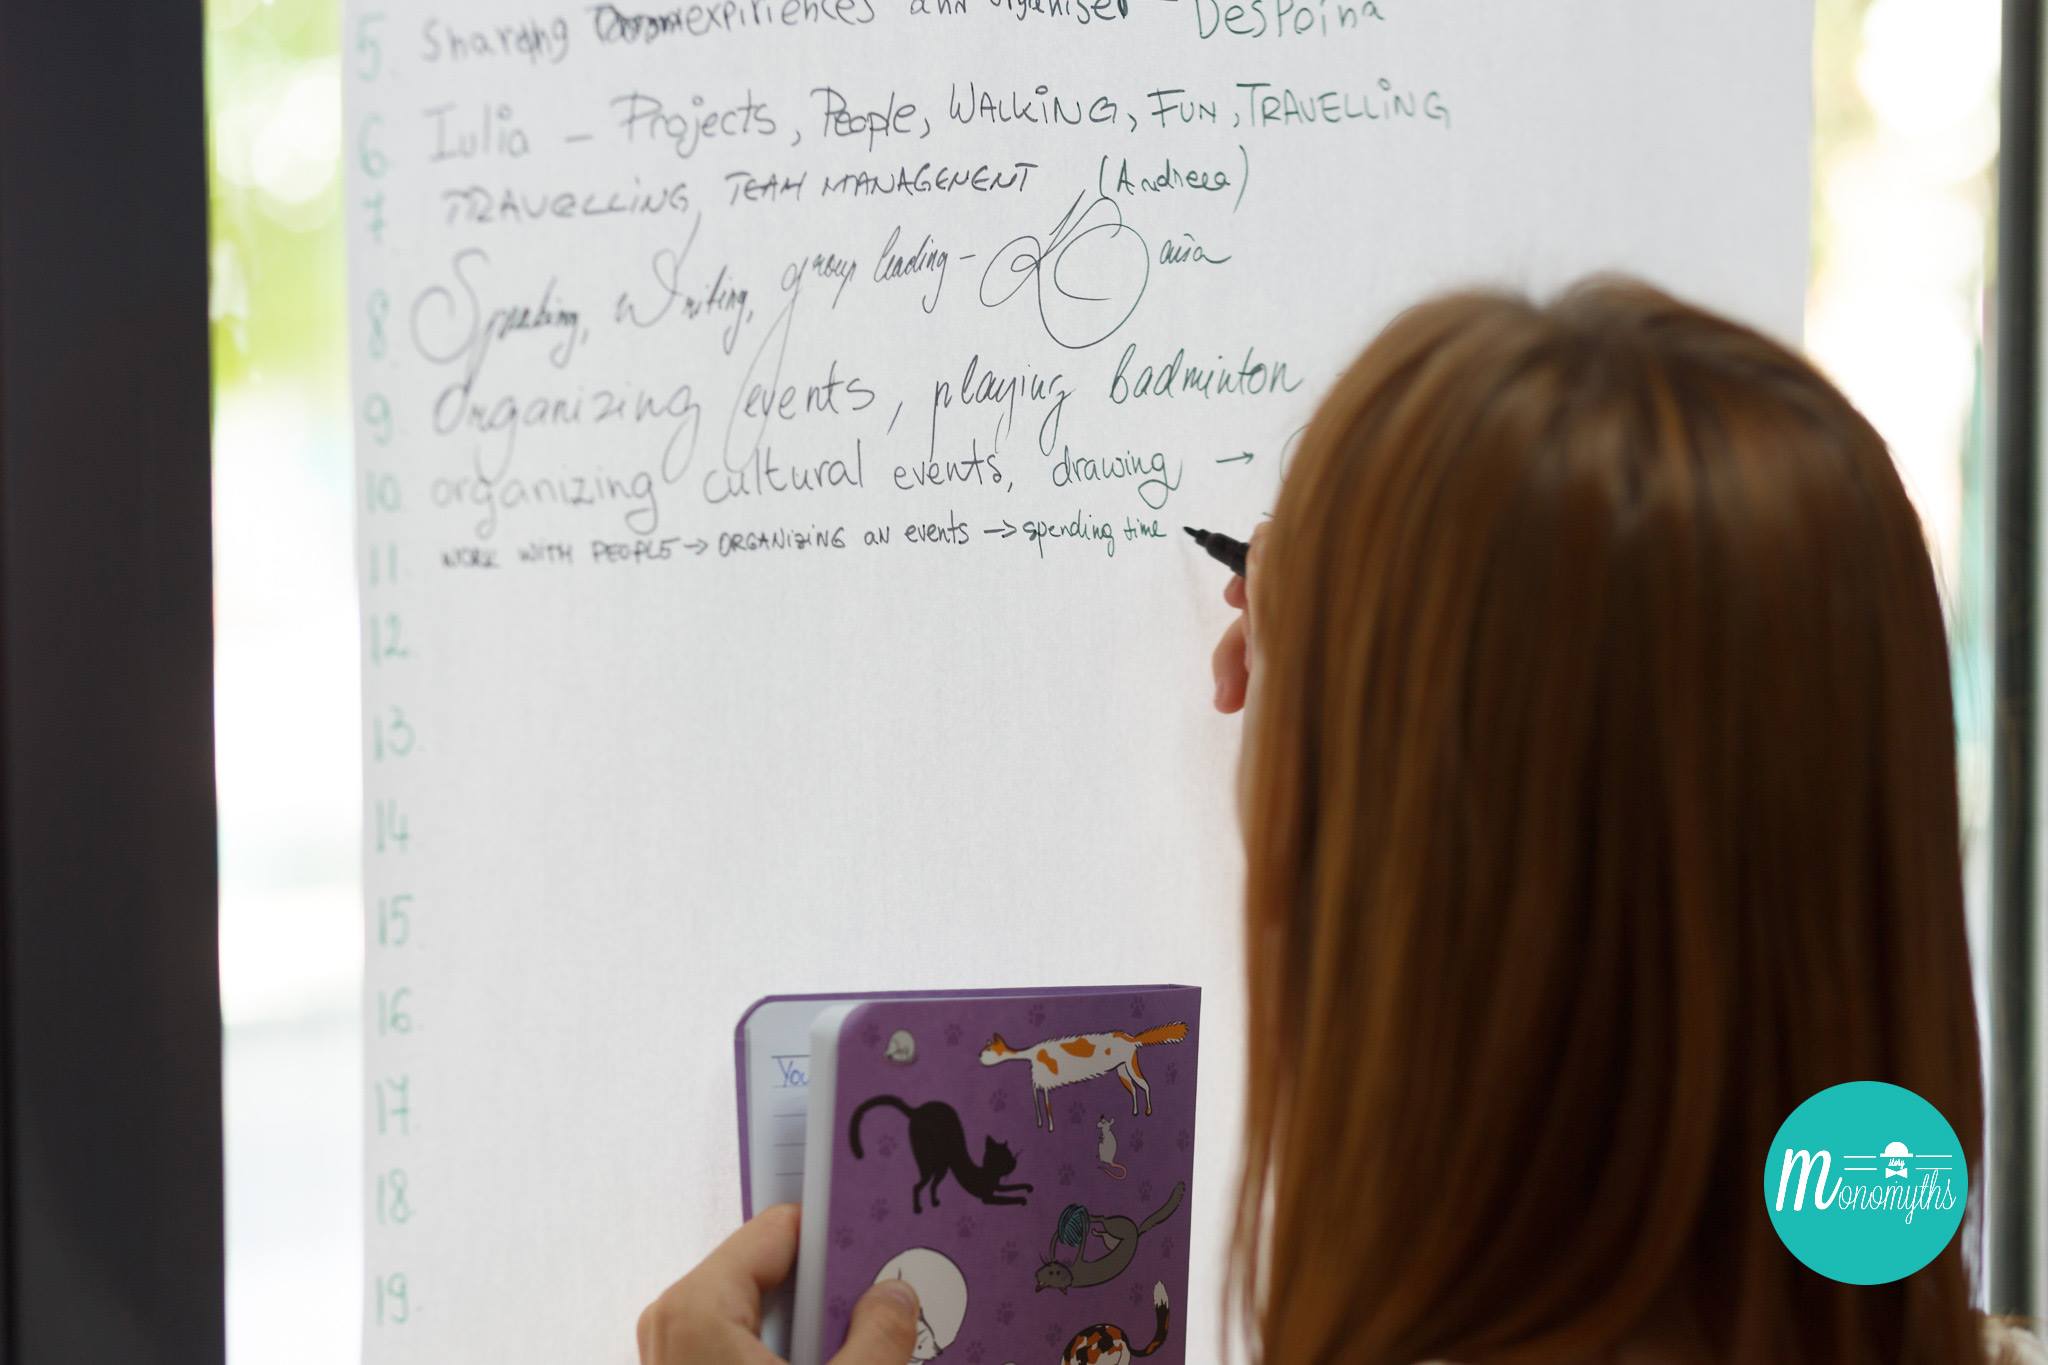 5. Sharing expiriences ann organised - Despoina
6. Iulia - Projects, People, WALKiNG, FUN, TRAVELLiNG
7 TRAVELLiNG, TEAM MANAGEMENT (Andreea)
8 Speaking, Writing, group leading - Raisa
9 Organizing events, playing badminton
10 organizing cultural events, drawing →
11. WORK WiTH PEOPLE → ORGANiziNG AN events → spending time
12.
13.
14
15
16.
17.
18.
19.
You
Monomyths
story